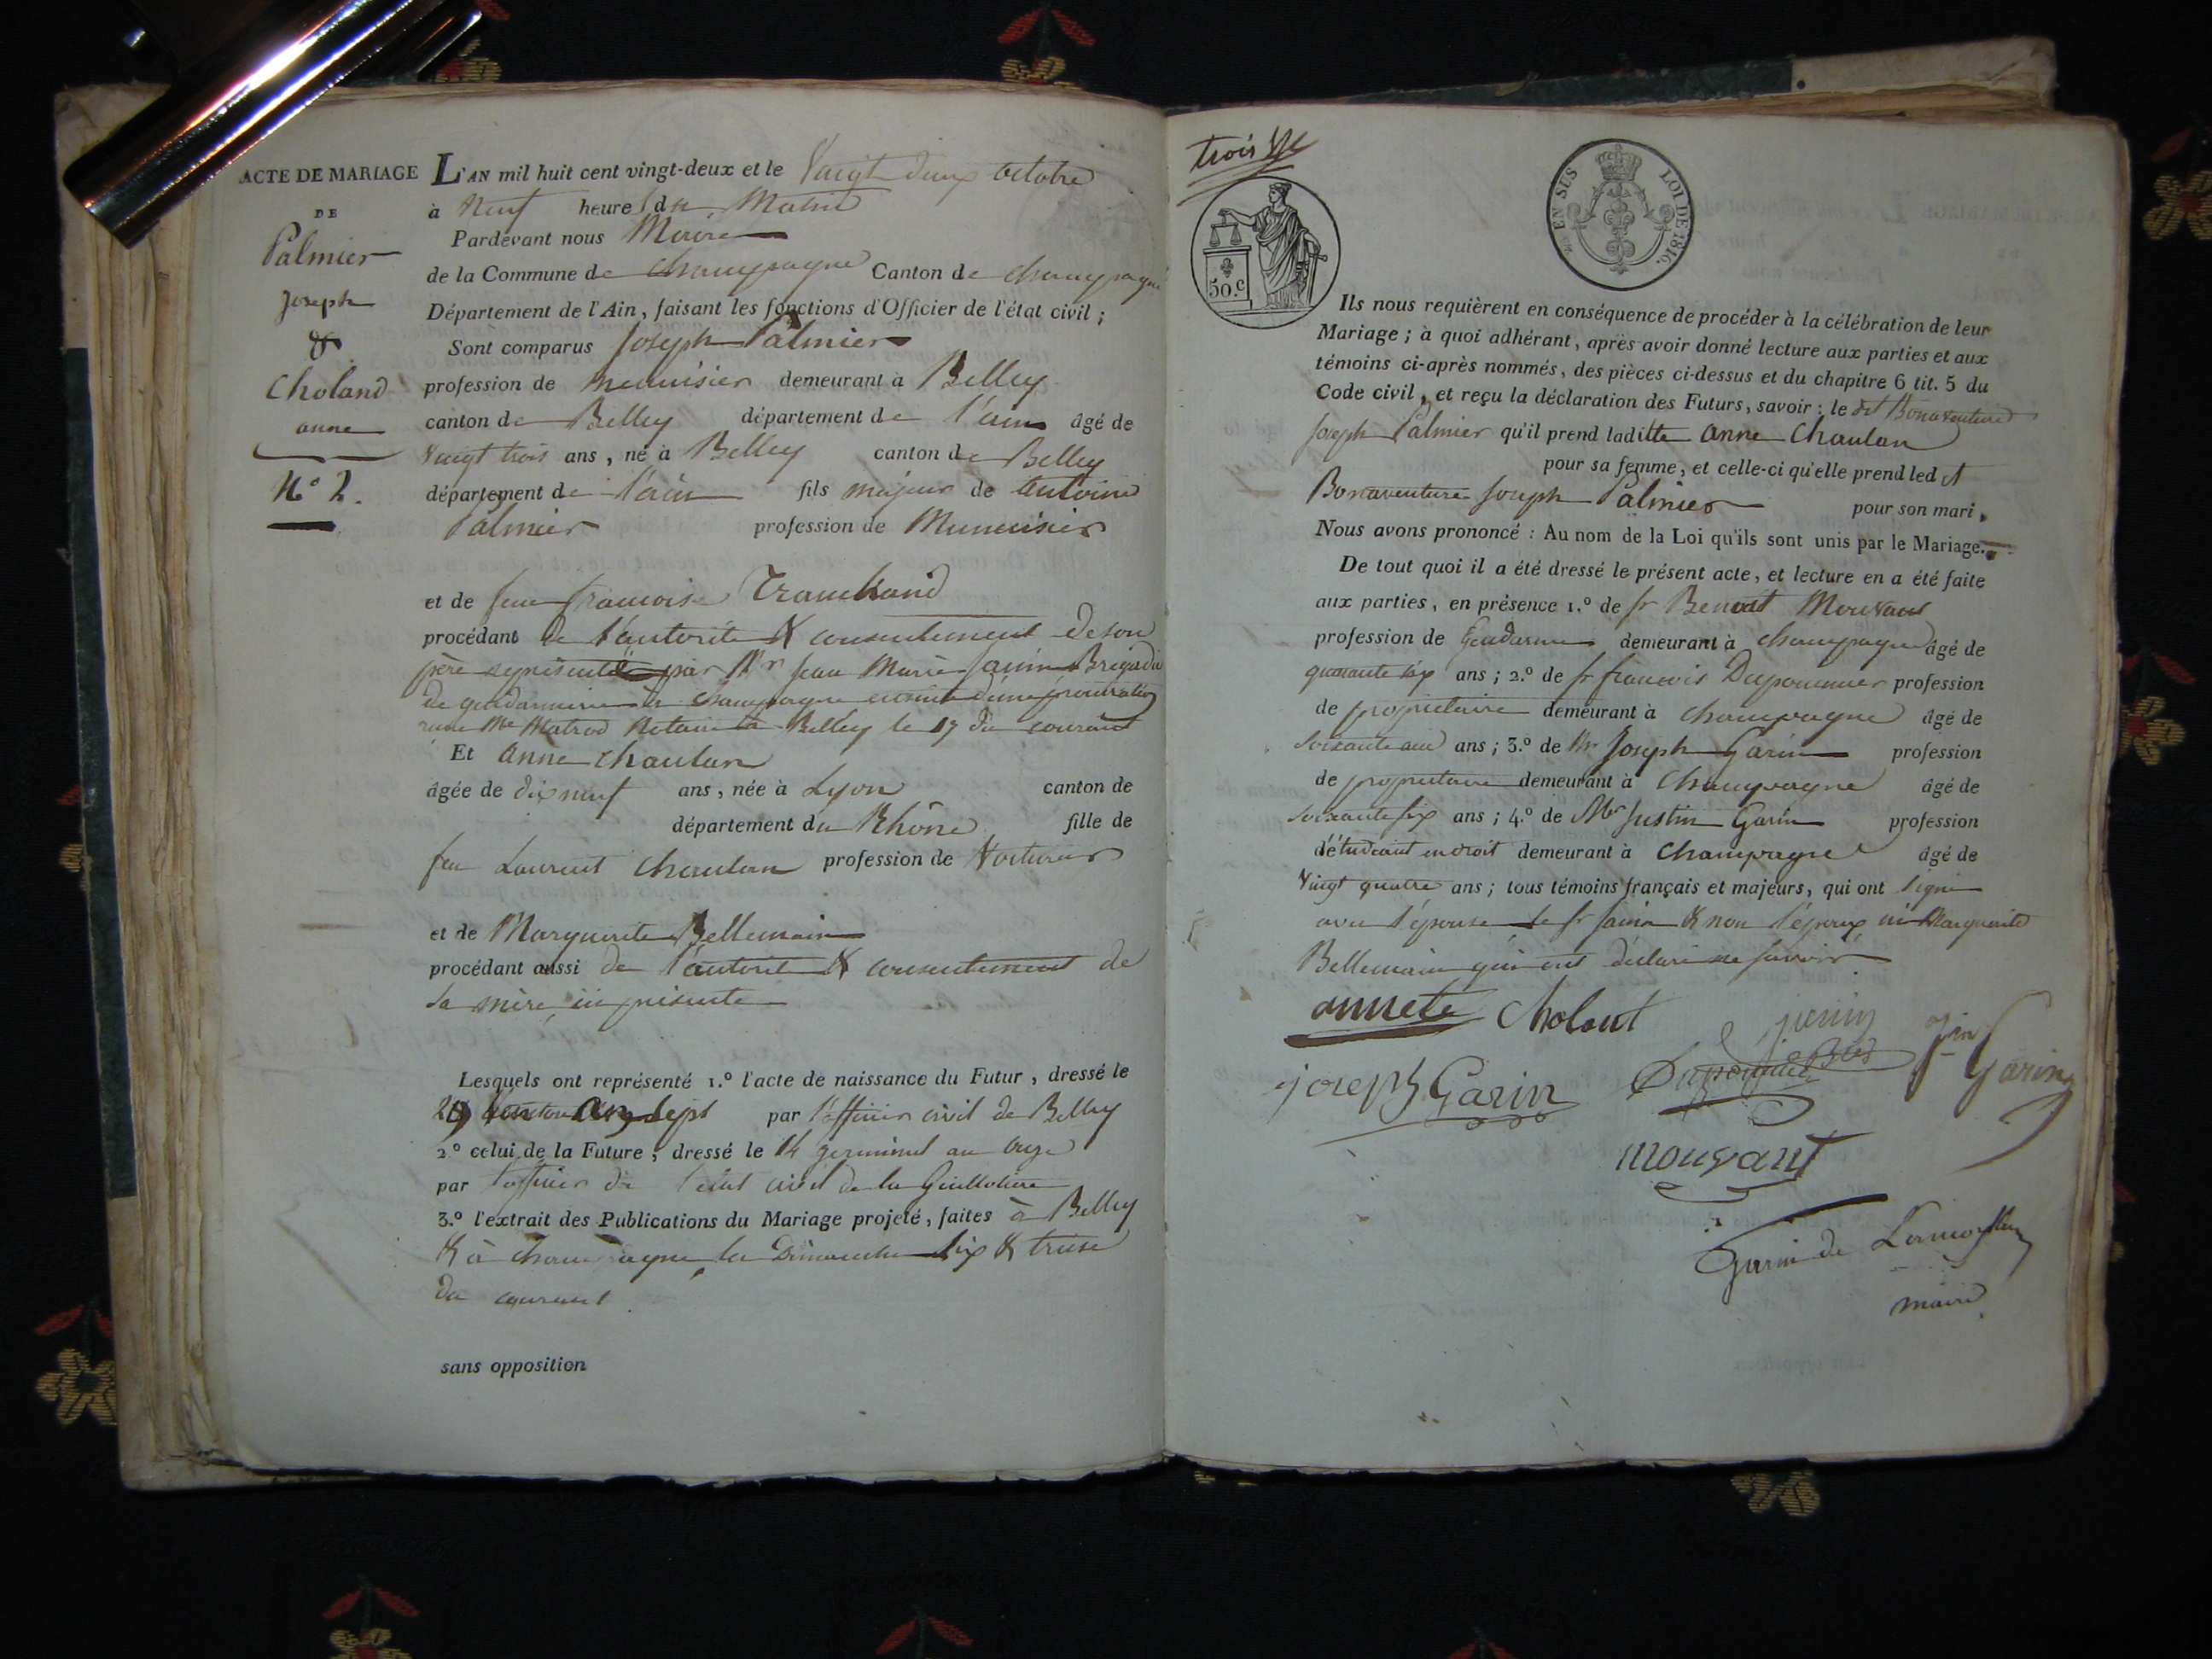 ACTE DE MARIAGE
DE
Palmier
Joseph
&
Choland
anne
N.° 2.
L'AN mil huit cent vingt-deux et le Vingt deux octobre
à Neuf heures du Matin
Pardevant nous Maire
de la Commune de champagne Canton de champagne
Département de l'Ain, faisant les fonctions d'Officier de l'état civil ;
Sont comparus Joseph Palmier
profession de menuisier demeurant à Belley
canton de Belley département de l'ain âgé de
Vingt trois ans, né à Belley canton de Belley
département de l'ain fils majeur de antoine
Palmier profession de Menuisier
et de feue francoise Tranchand
procédant de l'autorité & consentement de son
père représenté par Mr Jean Marie Brigadier
de gendarmerie à champagne ensuite d'une procuration
Me Matrod Notaire à Belley le 17 du courant
Et anne chaulan
âgée de dix neuf ans, née à Lyon canton de
département du Rhône fille de
feu Laurent Chaulan profession de Voiturier
et de Marguerite Bellemain
procédant aussi de l'autorité & consentement de
sa mère ici présente
Lesquels ont représenté 1.° l'acte de naissance du Futur, dressé le
an sept par l'officier civil de Belley
2.° celui de la Future, dressé le 14 germinal an onze
par l'officier de l'état civil de la Guillotiere
3.° l'extrait des Publications du Mariage projeté, faites à Belley
& à champagne les Dimanches six & treise
du courant
sans opposition
trois
50.c
EN SUS LOI DE 1816.
Ils nous requièrent en conséquence de procéder à la célébration de leur
Mariage ; à quoi adhérant, après avoir donné lecture aux parties et aux
témoins ci-après nommés, des pièces ci-dessus et du chapitre 6 tit. 5 du
Code civil, et reçu la déclaration des Futurs, savoir : le dit Bonaventure
Joseph Palmier qu'il prend laditte anne Chaulan
pour sa femme, et celle-ci qu'elle prend led it
Bonaventure Joseph Palmier pour son mari,
Nous avons prononcé : Au nom de la Loi qu'ils sont unis par le Mariage.
De tout quoi il a été dressé le présent acte, et lecture en a été faite
aux parties, en présence 1.° de sr Benoit Mouvant
profession de Gendarme demeurant à champagne âgé de
quarante six ans ; 2.° de sr francois Duponnier profession
de proprietaire demeurant à champagne âgé de
ans ; 3.° de Mr Joseph Garin profession
de proprietaire demeurant à Champagne âgé de
soixante six ans ; 4.° de Mr Justin Garin profession
d'étudiant en droit demeurant à Champagne âgé de
Vingt quatre ans ; tous témoins français et majeurs, qui ont signé
avec l'épouse le sr & non l'époux ni Marguerite
Bellemain qui ont déclaré ne savoir
annete Cholant
joseph Garin
Jin Garin
mouvant
Garin de
maire